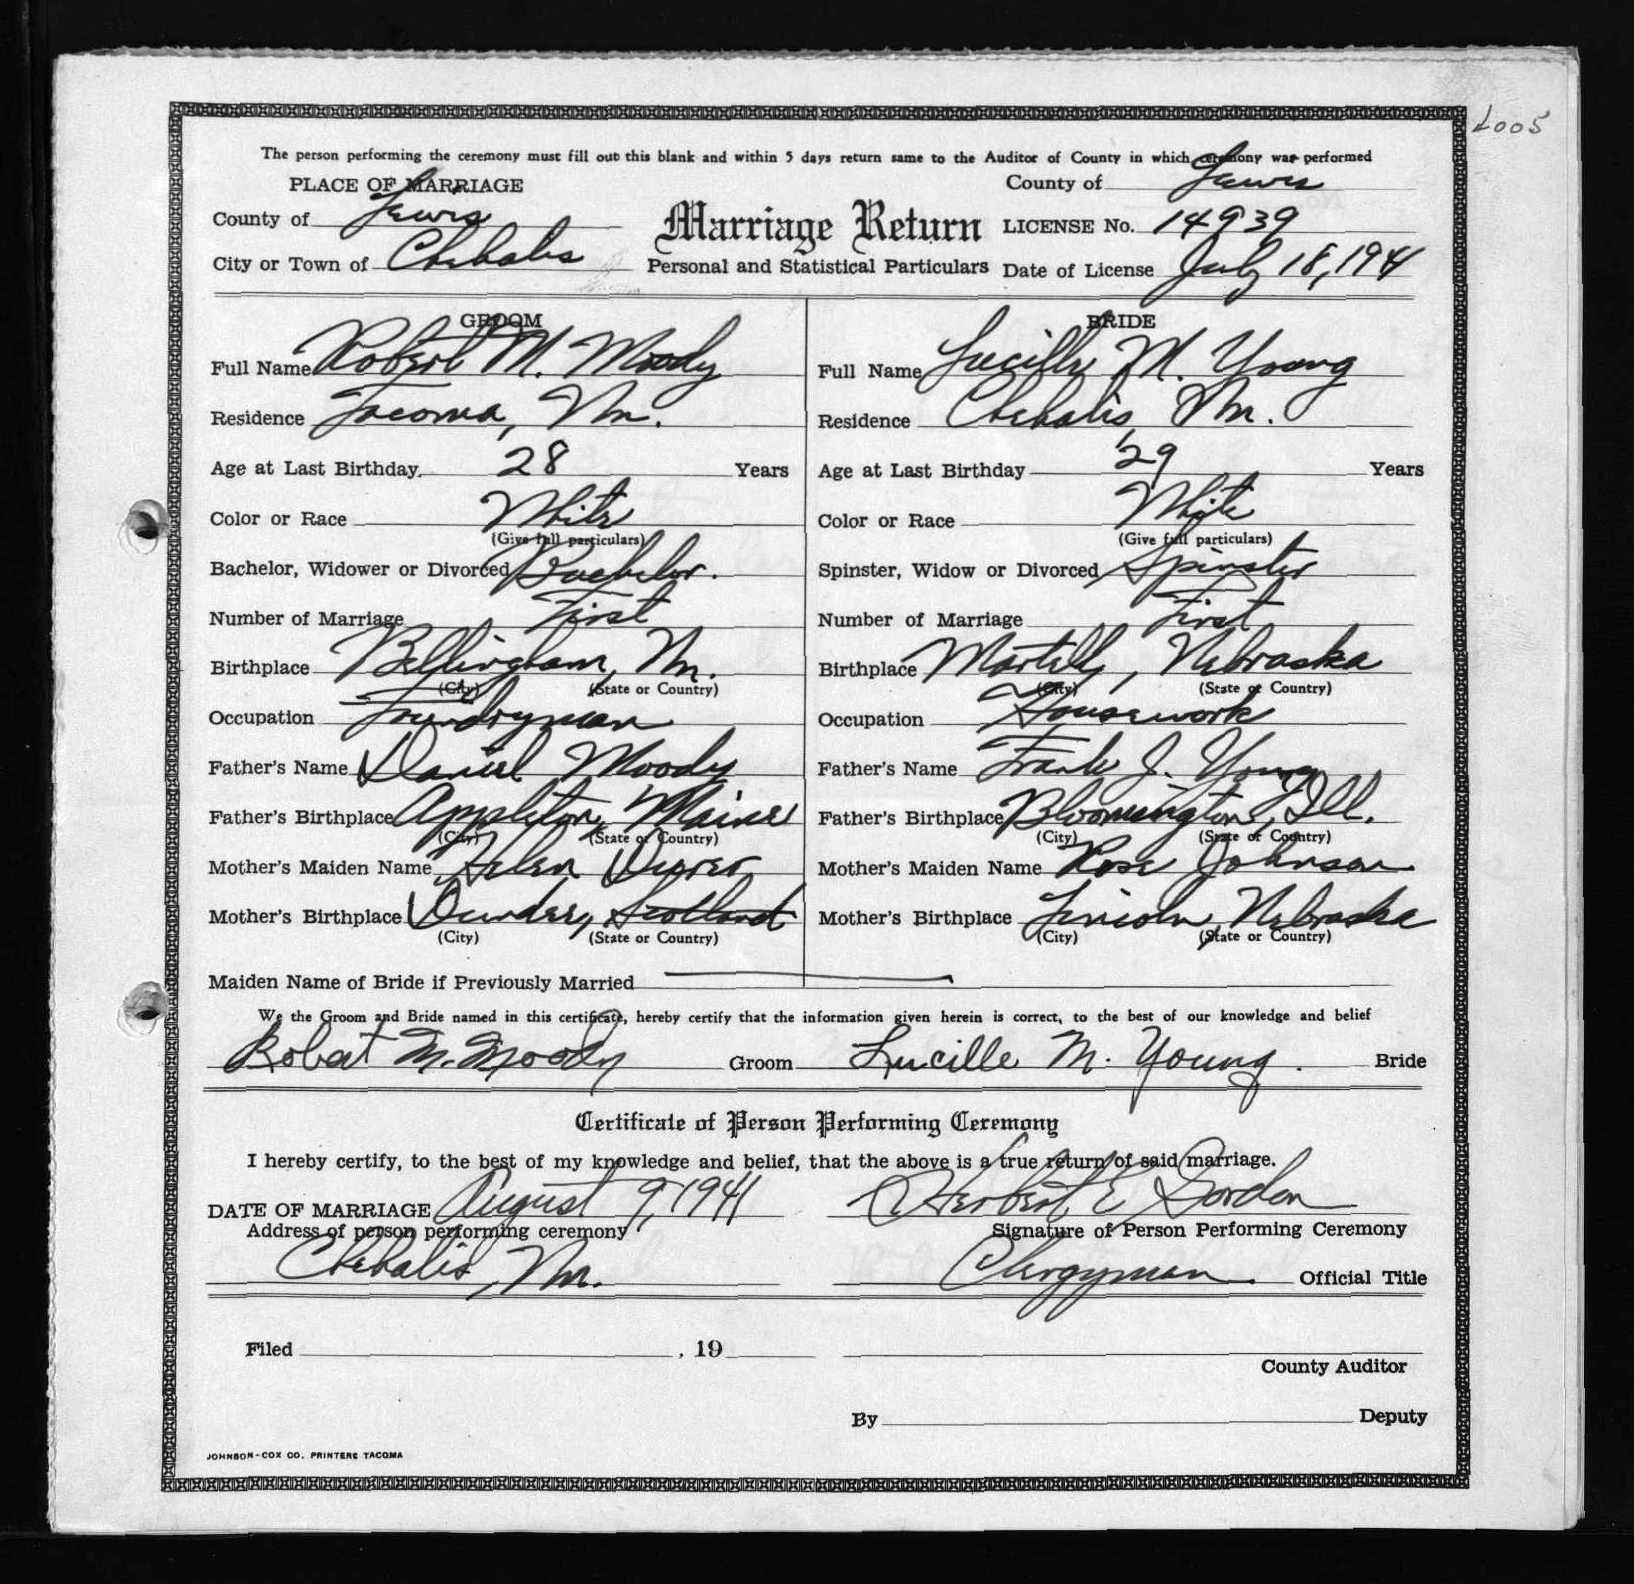 L005
The person performing the ceremony must fill out this blank and within 5 days return same to the Auditor of County in which ceremony was performed
PLACE OF MARRIAGE
County of Lewis
County of Lewis
Marriage Return
LICENSE No. 14939
City or Town of Chehalis
Personal and Statistical Particulars
Date of License July 18, 1941
GROOM
BRIDE
Full Name Robert M. Moody
Full Name Lucille M. Young
Residence Tacoma, Wn.
Residence Chehalis, Wn.
Age at Last Birthday 28 Years
Age at Last Birthday 29 Years
Color or Race White
Color or Race White
(Give full particulars)
(Give full particulars)
Bachelor, Widower or Divorced Bachelor.
Spinster, Widow or Divorced Spinster
Number of Marriage First
Number of Marriage First
Birthplace Bellingham, Wn.
Birthplace Martell, Nebraska
(City) (State or Country)
(City) (State or Country)
Occupation Foundryman
Occupation Housework
Father's Name Daniel Moody
Father's Name Frank J. Young
Father's Birthplace Appleton, Maine
Father's Birthplace Bloomington, Ill.
(City) (State or Country)
(City) (State or Country)
Mother's Maiden Name Helen
Mother's Maiden Name Rose Johnson
Mother's Birthplace Dundee, Scotland
Mother's Birthplace Lincoln, Nebraska
(City) (State or Country)
(City) (State or Country)
Maiden Name of Bride if Previously Married
We the Groom and Bride named in this certificate, hereby certify that the information given herein is correct, to the best of our knowledge and belief
Robert M. Moody Groom
Lucille M. Young. Bride
Certificate of Person Performing Ceremony
I hereby certify, to the best of my knowledge and belief, that the above is a true return of said marriage.
DATE OF MARRIAGE August 9, 1941
Herbert E Gordon
Address of person performing ceremony
Signature of Person Performing Ceremony
Chehalis, Wn.
Clergyman. Official Title
Filed , 19
County Auditor
By Deputy
JOHNSON-COX CO. PRINTERS TACOMA